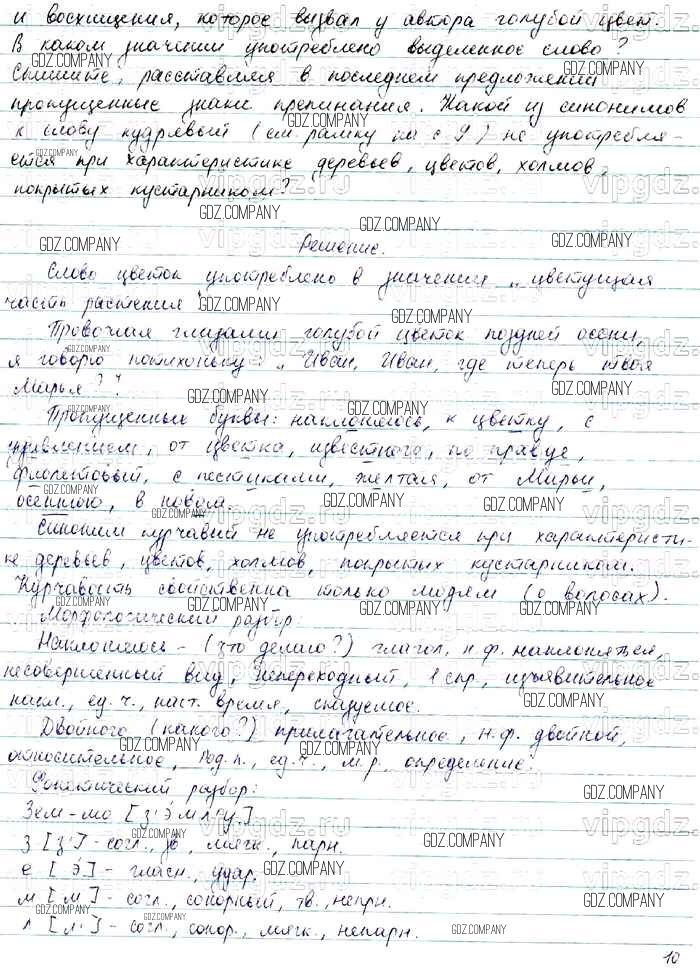 и восхищения, которое вызвал у автора голубой цвет.
В каком значении употреблено выделенное слово?
Спишите, расставляя в последнем предложении
пропущенные знаки препинания. Какой из синонимов
к слову кудрявый (см. рамку на с 9) не употребля-
ется при характеристике деревьев, цветов, холмов,
покрытых кустарником?
Решение.
Слово цветок употреблено в значении „цветущая
часть растения"
Провожая глазами голубой цветок поздней осени,
я говорю потихоньку: „Иван, Иван, где теперь твоя
Марья?"
Пропущенные буквы: наклоняюсь, к цветку, с
удивлением, от цветка, известного, по правде,
фиолетовый, с пестиками, желтая, от Марьи,
осеннюю, в новом.
Синоним курчавый не употребляется при характеристи-
ке деревьев, цветов, холмов, покрытых кустарником.
Курчавость свойственна только людям (о волосах).
Морфологический разбор:
Наклоняюсь - (что делаю?) глагол, н.ф. наклоняться,
несовершенный вид, непереходный, 1 спр, изъявительное
накл., ед.ч., наст. время, сказуемое.
Двойного (какого?) прилагательное, н.ф. двойной,
относительное, Род.п., ед.ч., м.р, определение.
Фонетический разбор:
з [з'] - согл., зв, мягк., парн.
е [э́] - гласн., удар.
м [м] - согл., сонорный, тв., непрн.
л [л'] - согл., сонор., мягк., непарн.
10
GDZ.COMPANY
vipgdz.ru